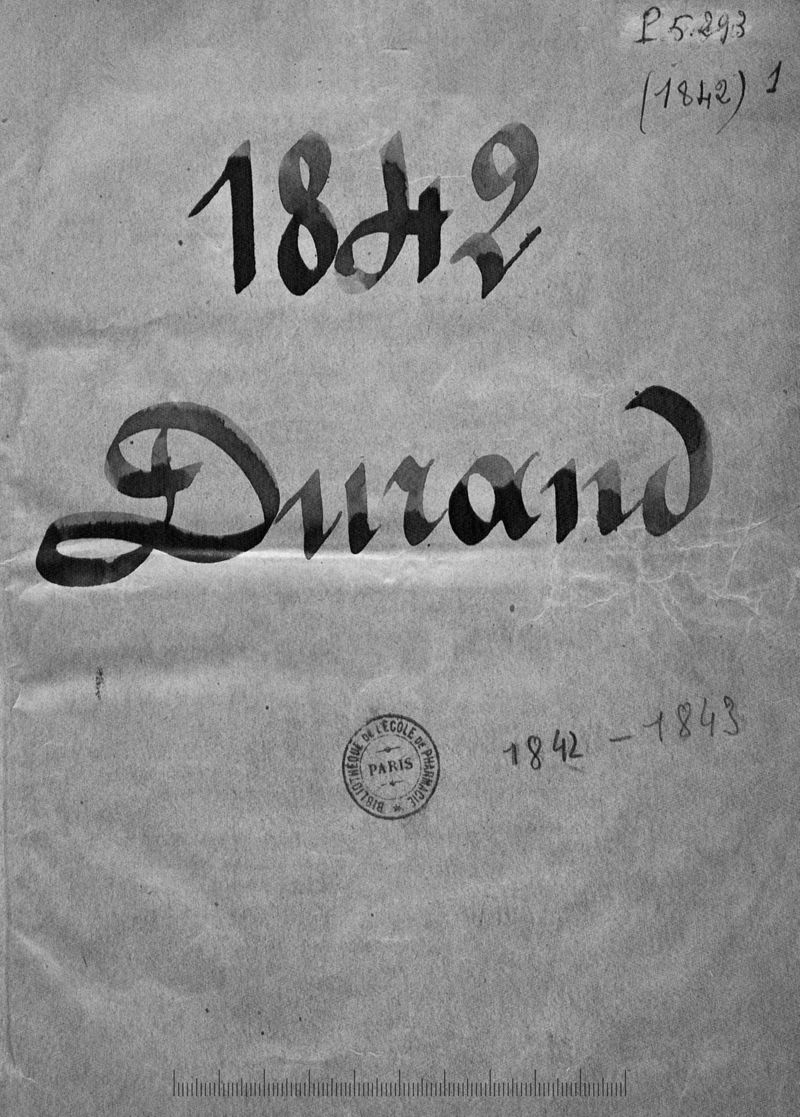 P. 5.293
(1842) 1
1842
Durand
1842 - 1843
BIBLIOTHÈQUE DE L'ÉCOLE DE PHARMACIE
PARIS